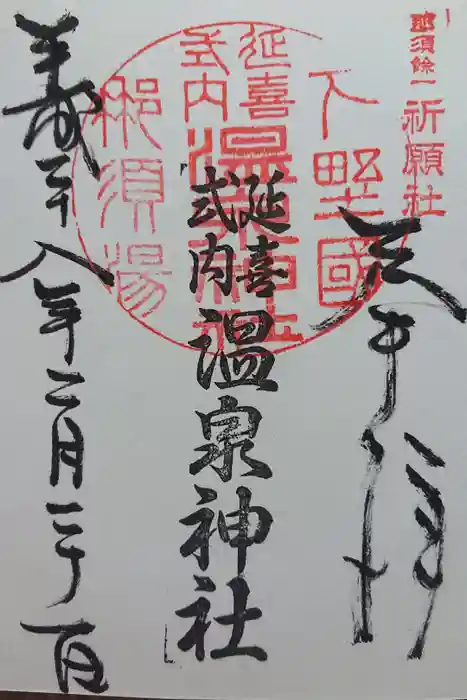 那須餘一
祈願社
奉拝
下野國
延喜
式内
溫泉神社
那須湯
延喜
式内
温泉神社
平成二十八年二月二十一日